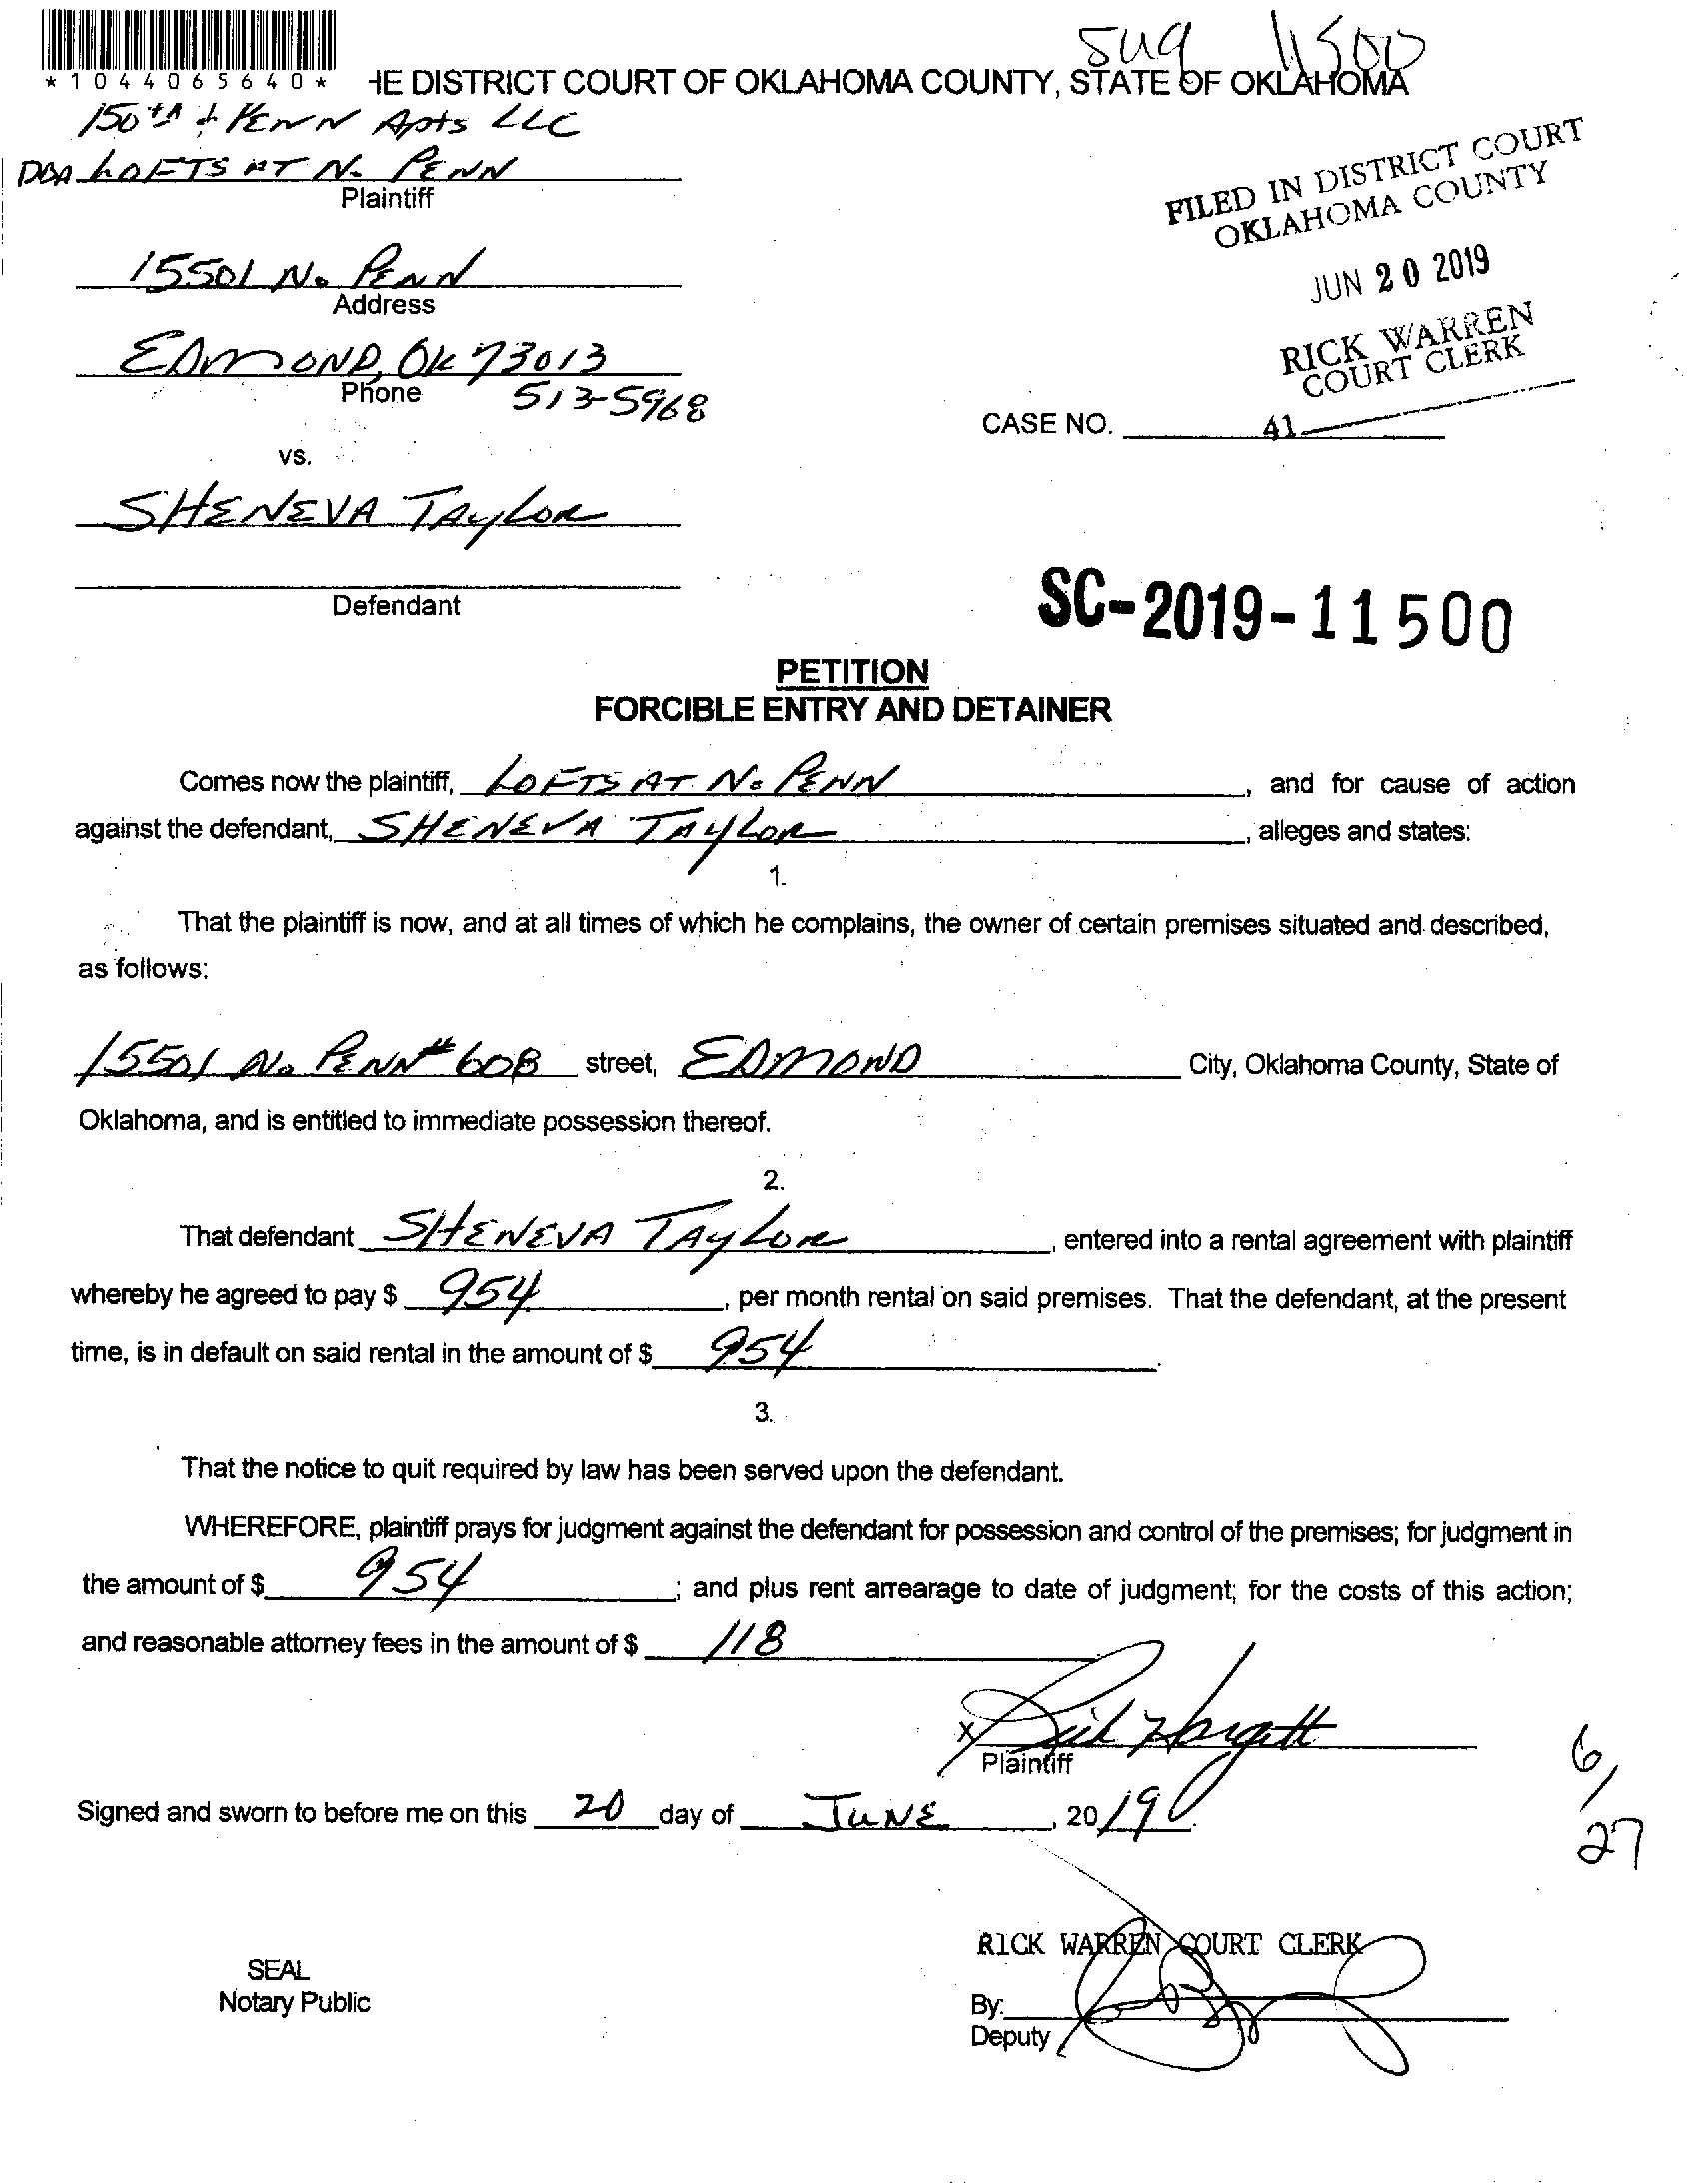 SUQ 11500
*1044065640* HE DISTRICT COURT OF OKLAHOMA COUNTY, STATE OF OKLAHOMA
150th & PENN Apts LLC
DBA LOFTS AT N. PENN
Plaintiff
FILED IN DISTRICT COURT
OKLAHOMA COUNTY
JUN 20 2019
RICK WARREN
COURT CLERK
41
15501 No PENN
Address
EDMOND, OK 73013
Phone 513-5968
CASE NO.
vs.
SHENEVA TAYLOR
Defendant
SC-2019-11500
PETITION
FORCIBLE ENTRY AND DETAINER
Comes now the plaintiff, LOFTS AT No PENN, and for cause of action
against the defendant, SHENEVA TAYLOR, alleges and states:
1.
That the plaintiff is now, and at all times of which he complains, the owner of certain premises situated and described,
as follows:
15501 No PENN #608 street, EDMOND City, Oklahoma County, State of
Oklahoma, and is entitled to immediate possession thereof.
2.
That defendant SHENEVA TAYLOR, entered into a rental agreement with plaintiff
whereby he agreed to pay $ 954, per month rental on said premises. That the defendant, at the present
time, is in default on said rental in the amount of $ 954.
3.
That the notice to quit required by law has been served upon the defendant.
WHEREFORE, plaintiff prays for judgment against the defendant for possession and control of the premises; for judgment in
the amount of $ 954; and plus rent arrearage to date of judgment; for the costs of this action;
and reasonable attorney fees in the amount of $ 118
X
Plaintiff
Signed and sworn to before me on this 20 day of JUNE, 2019.
6/27
RICK WARREN COURT CLERK
SEAL
Notary Public
By:
Deputy